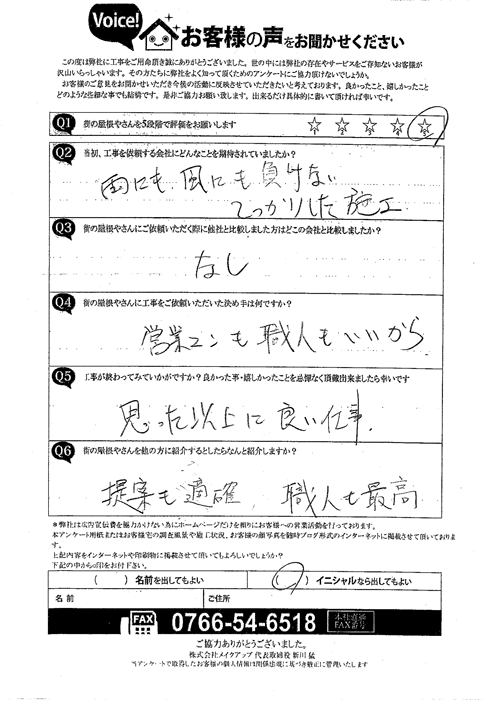 Voice!
お客様の声をお聞かせください
この度は弊社に工事をご用命頂き誠にありがとうございました。世の中には弊社の存在やサービスをご存知ないお客様が
沢山いらっしゃいます。その方たちに弊社をよく知って頂くためのアンケートにご協力頂けないでしょうか。
お客様のご意見をお聞かせいただき今後の活動に反映させていただきたいと考えております。良かったこと、嬉しかったこと
どのような些細な事でも結構です。是非ご協力お願い致します。出来るだけ具体的に書いて頂ければ幸いです。
Q1 街の屋根やさんを5段階で評価をお願いします
☆1 ☆2 ☆3 ☆4 ☆5
Q2 当初、工事を依頼する会社にどんなことを期待されていましたか?
雨にも風にも負けない
しっかりした施工
Q3 街の屋根やさんにご依頼いただく際に他社と比較しました方はどこの会社と比較しましたか?
なし
Q4 街の屋根やさんに工事をご依頼いただいた決め手は何ですか?
営業マンも職人もいいから
Q5 工事が終わってみていかがですか?良かった事・嬉しかったことを忌憚なく頂戴出来ましたら幸いです
思った以上に良い仕事。
Q6 街の屋根やさんを他の方に紹介するとしたらなんと紹介しますか?
提案も適確、職人も最高
*弊社は広告宣伝費を極力かけない為にホームページだけを頼りにお客様への営業活動を行っております。
本アンケート用紙またはお客様宅の調査風景や施工状況、お客様の顔写真を随時ブログ形式のインターネットに掲載させて頂いております。
上記内容をインターネットや印刷物に掲載させて頂いてもよろしいでしょうか?
下記の中から○印をお付下さい。
( ) 名前を出してもよい
(○) イニシャルなら出してもよい
名前
ご住所
FAX 0766-54-6518 本社直通 FAX番号
ご協力ありがとうございました。
株式会社メイクアップ 代表取締役 新川 猛
当アンケートで取得したお客様の個人情報は関係法規に基づき厳正に管理いたします